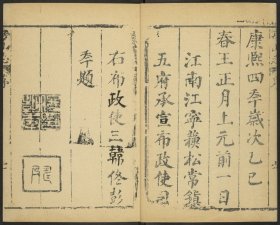 康熙四年歲次乙巳
春王正月上元前一日
江南江寧蘇松常鎮
五府承宣布政使司
右布政使三韓佟彭
年題